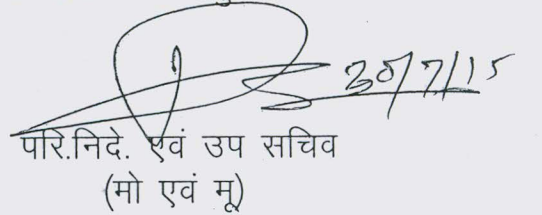 30/7/15
परि.निदे. एवं उप सचिव
(मो एवं मू)